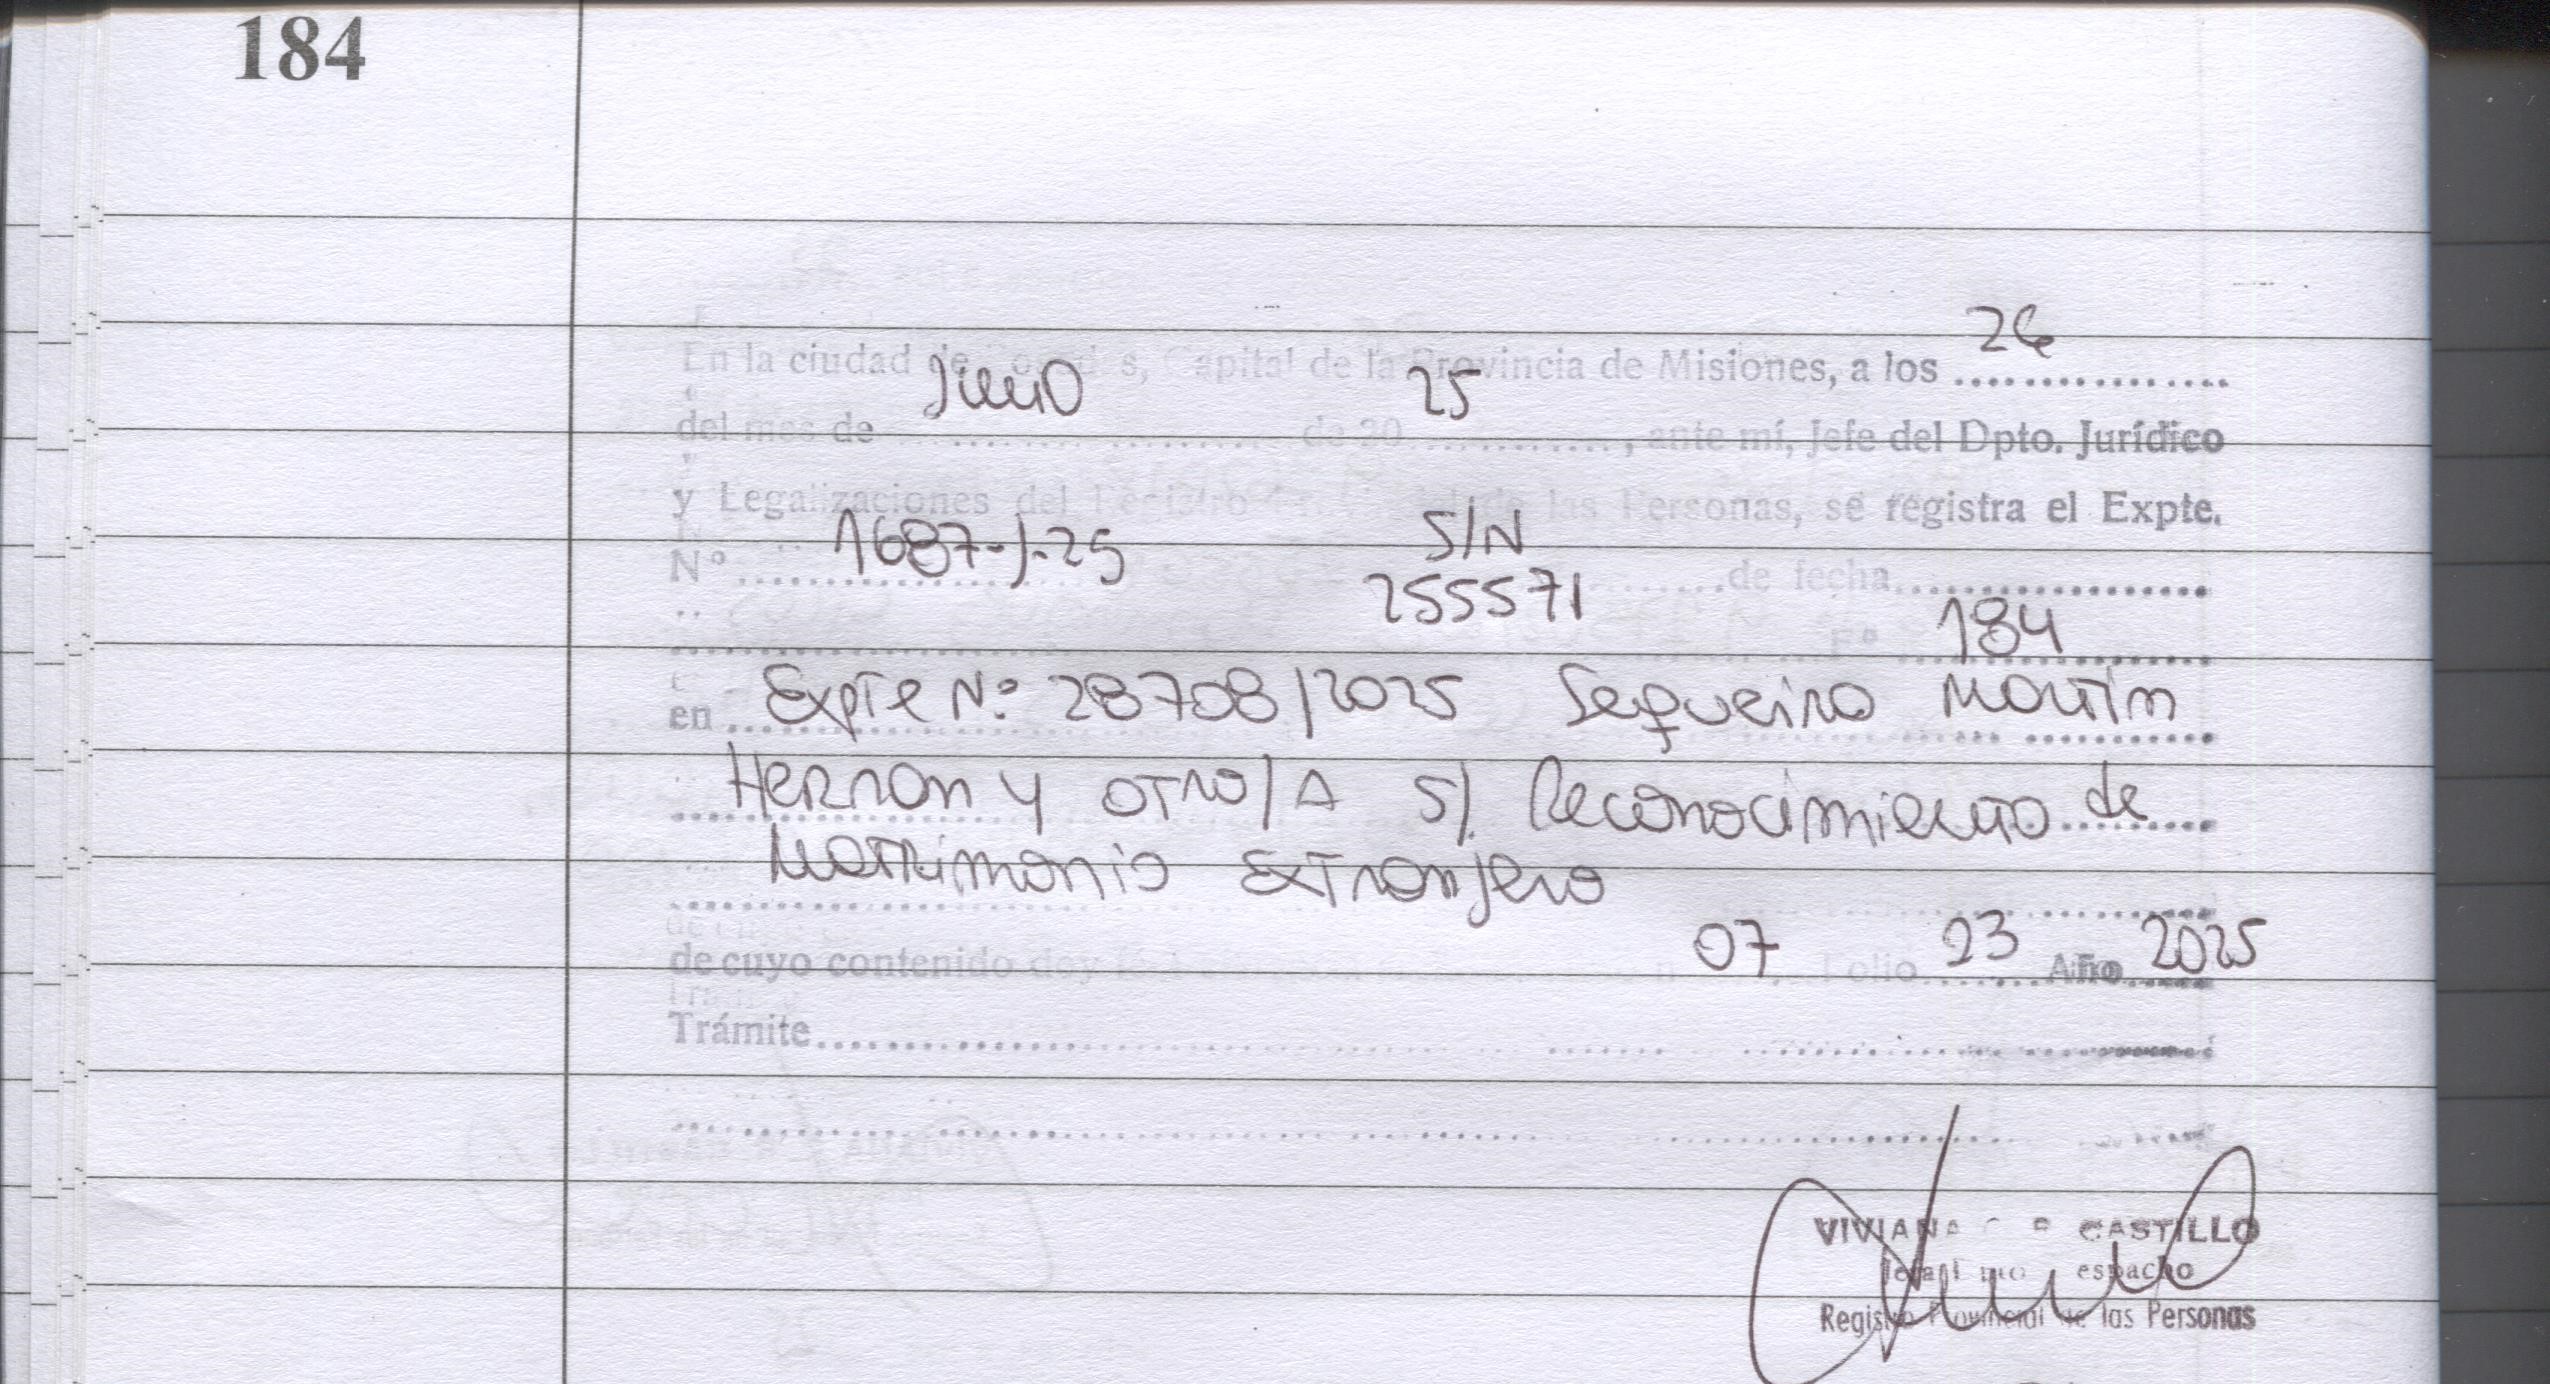 184
26
En la ciudad de Posadas, Capital de la Provincia de Misiones, a los ................
Junio 25
del mes de .................... de 20 ............, ante mí, Jefe del Dpto. Jurídico
y Legalizaciones del Registro de las Personas, se registra el Expte.
1687-J-25 S/N
Nº .................... de fecha....................
255571
Fº 184
en Expte Nº 28708/2025 Sequeira Martin
Hernan y otro/A S/. Reconocimiento de
Matrimonio Extranjero
07 23 2025
de cuyo contenido doy fe Folio ........ Año ........
Trámite....................
VIVIANA CASTILLO
Despacho
Registro Provincial de las Personas